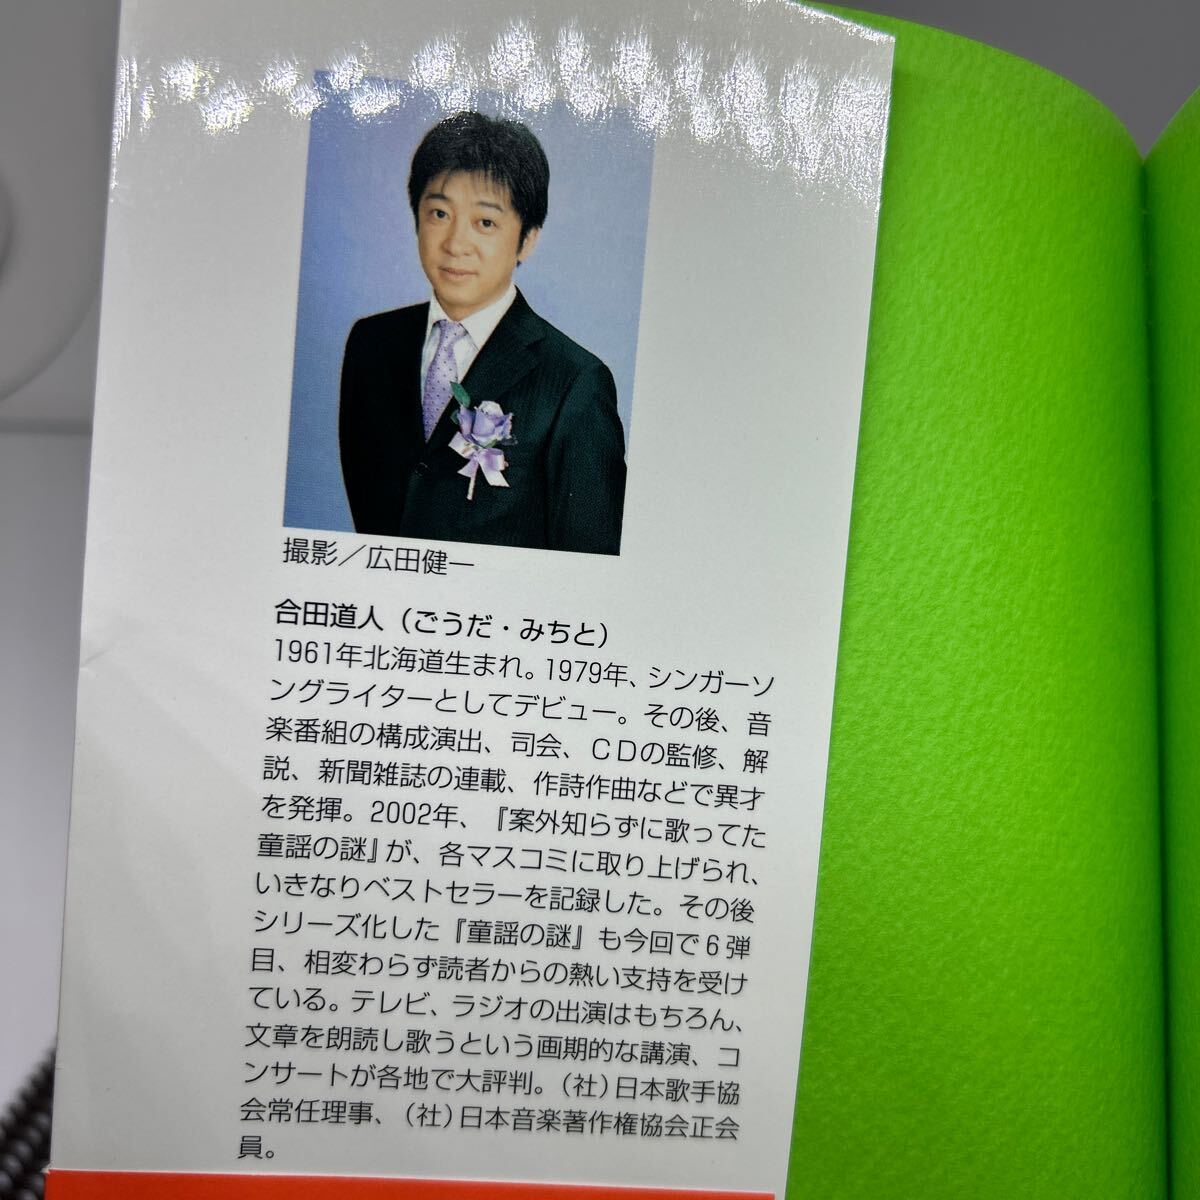 撮影／広田健一
合田道人（ごうだ・みちと）
1961年北海道生まれ。1979年、シンガーソ
ングライターとしてデビュー。その後、音
楽番組の構成演出、司会、ＣＤの監修、解
説、新聞雑誌の連載、作詩作曲などで異才
を発揮。2002年、『案外知らずに歌ってた
童謡の謎』が、各マスコミに取り上げられ、
いきなりベストセラーを記録した。その後
シリーズ化した『童謡の謎』も今回で６弾
目、相変わらず読者からの熱い支持を受け
ている。テレビ、ラジオの出演はもちろん、
文章を朗読し歌うという画期的な講演、コ
ンサートが各地で大評判。（社）日本歌手協
会常任理事、（社）日本音楽著作権協会正会
員。